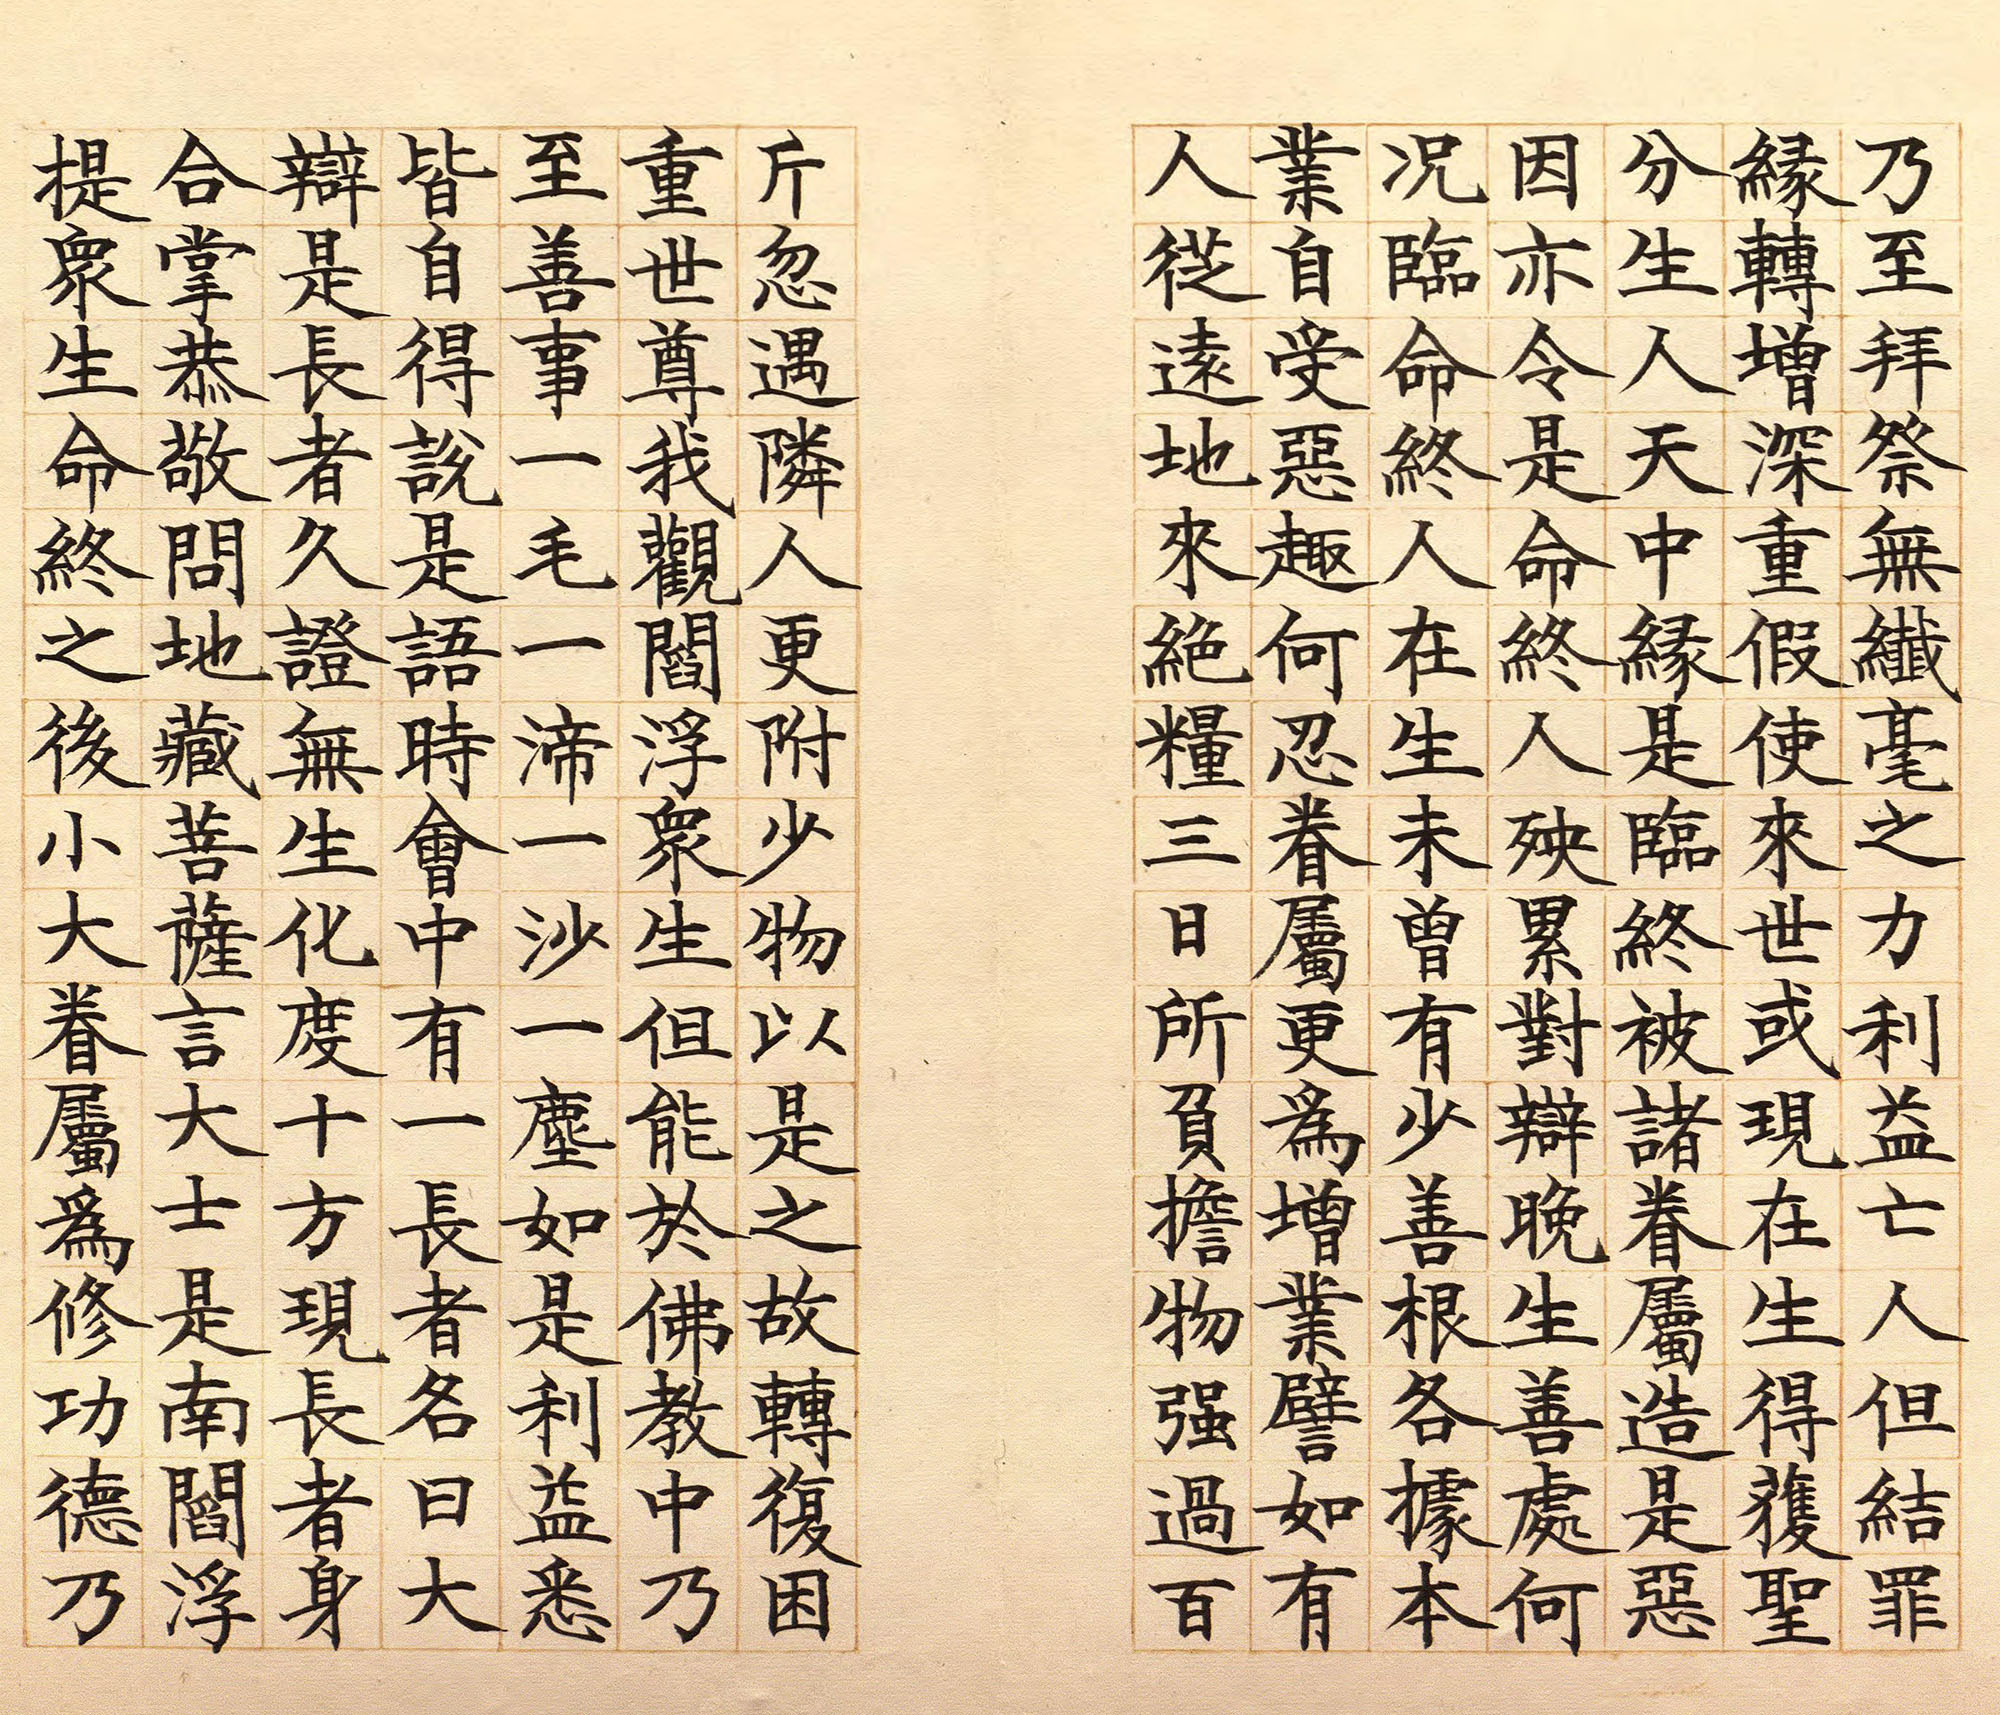 乃至拜祭無纖毫之力利益亡人但結罪
緣轉增深重假使來世或現在生得獲聖
分生人天中緣是臨終被諸眷屬造是惡
因亦令是命終人殃累對辯晚生善處何
况臨命終人在生未曾有少善根各據本
業自受惡趣何忍眷屬更為增業譬如有
人從遠地來絕糧三日所負擔物强過百
斤忽遇隣人更附少物以是之故轉復困
重世尊我觀閻浮眾生但能於佛教中乃
至善事一毛一渧一沙一塵如是利益悉
皆自得說是語時會中有一長者名曰大
辯是長者久證無生化度十方現長者身
合掌恭敬問地藏菩薩言大士是南閻浮
提眾生命終之後小大眷屬為修功德乃